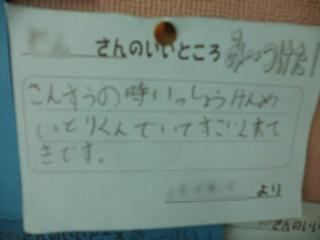 さんのいいところ み〜つけた!
こんすうの時いっしょうけんめ
いとりくんでいてすごくすて
きです。
より
さんのいい